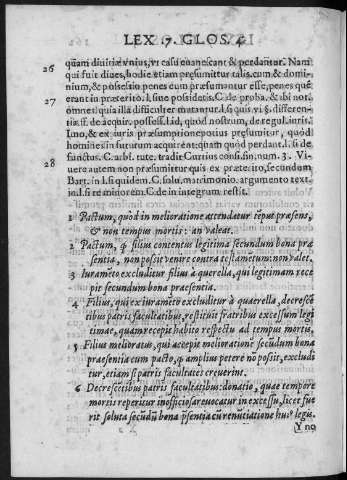 LEX 17. GLOS. 4.
26 quãm diuitiæ vnius, vt casu euanescant & perdantur. Nam
qui fuit diues, hodie etiam præsumittur talis. cum & domi-
nium, & possessio penes eum præsumantur esse, penes quẽ
27 erant in præterito. l. siue possidetis. C. de proba. & ibi not.
omnes: quia illa difficulter mutantur. l. si quis vi §. differen-
tia. ff. de acquir. possess. l. id, quod nostrum, de regul. iuris.
Imo, & ex iuris præsumptione potius præsumitur, quòd
homines in futurum acquirent: quam quod perdant. l. si de
28 functus. C. arbi. tute. tradit Curtius consi. fin. num. 3. Vi-
uere autem non præsumittur quis ex præterito, secundum
Bart. in l. si quidem. C. solu. marimonio. argumento text.
in l. si te minorem. C. de in integrum restit.
1 Pactum, quòd in melioratione attendatur tẽpus præsens,
& non tempus mortis: an valeat.
2 Pactum, ꝙ filius contentus legitima secundum bona præ
sentia, non possit venire contra testamẽtum: non valet.
3 Iuramẽto excluditur filius à querella, qui legitimam rece
pit secundum bona præsentia.
4 Filius, qui ex iuramẽto excluditur à quærella, decrescẽ
tibus patris facultatibus, restituit fratribus excessum legi
timæ, quam recepit habito respectu ad tempus mortis.
5 Filius melioratus, qui accepit melioratione secũdum bona
præsentia cum pacto, ꝙ amplius petere nõ possit, excludi
tur, etiam si patris facultates creuerint.
6 Decrescẽtibus patris facultatibus: donatio, quæ tempore
mortis reperitur inofficiosa reuocatur in excessu, licet fue
rit soluta secũdũ bona p̃sentia cũ renũtiatione hui⁹ legis.
Y no